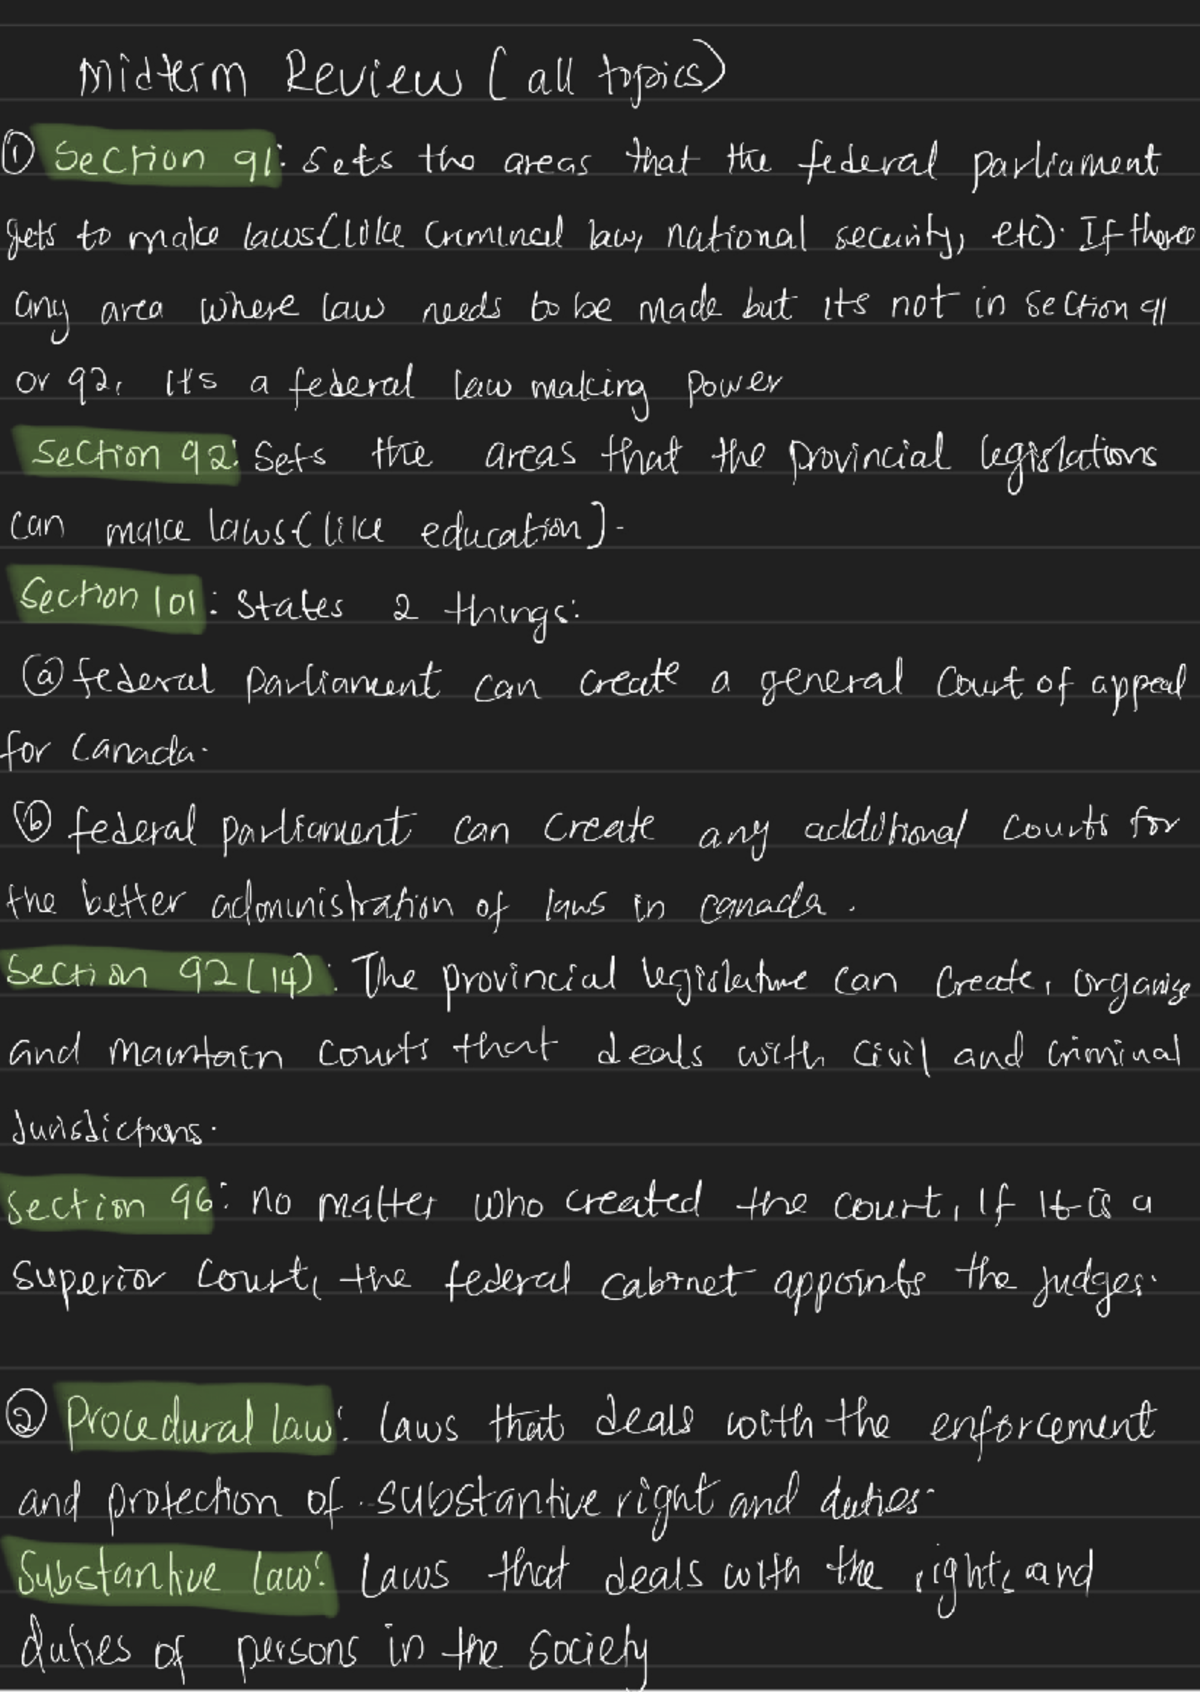 Midterm Review (all topics)
① Section 91: Sets the areas that the federal parliament
gets to make laws (like criminal law, national security, etc). If theres
any area where law needs to be made but its not in section 91
or 92, its a federal law making power
Section 92: Sets the areas that the provincial legislations
can make laws (like education).
Section 101: States 2 things:
ⓐ federal parliament can create a general court of appeal
for Canada.
ⓑ federal parliament can create any additional courts for
the better administration of laws in canada.
Section 92(14): The provincial legislature can create, organise
and maintain courts that deals with civil and criminal
Jurisdictions.
Section 96: no matter who created the court, If It is a
superior court, the federal cabinet appoints the judges.
② Procedural law: laws that deals with the enforcement
and protection of substantive right and duties.
Substantive law: Laws that deals with the rights and
duties of persons in the society